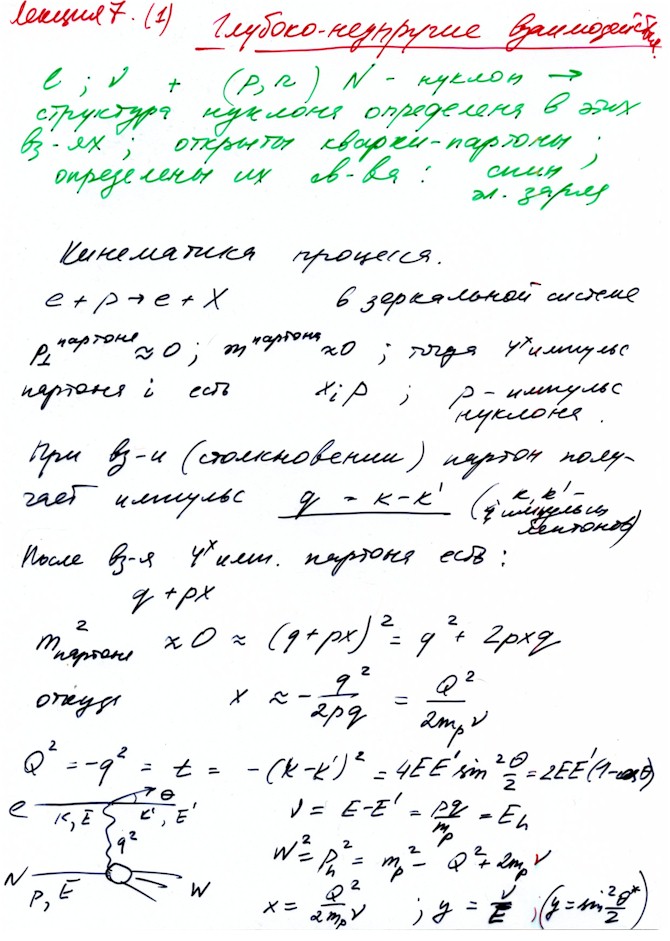 Лекция 7. (1) Глубоко-неупругие взаимодействия.
e ; ν + (p, n) N - нуклон →
структура нуклона определена в этих
вз-ях ; открыты кварки-партоны ;
определены их св-ва : спин ;
эл. заряд
Кинематика процесса.
e + p → e + X в зеркальной системе
p⊥ партона ≈ 0 ; m партона ≈ 0 ; тогда 4х импульс
партона i есть xᵢp ; p - импульс
нуклона.
При вз-и (столкновении) партон полу-
чает импульс q = k - k' (k, k' -
4 импульсы
лептонов)
После вз-я 4х имп. партона есть :
q + px
m² партона ≈ 0 ≈ (q + px)² = q² + 2pxq
откуда x ≈ - q²/2pq = Q²/2mₚν
Q² = -q² = t = -(k - k')² = 4EE' sin² θ/2 = 2EE'(1-cosθ)
e K, E θ K', E' ν = E - E' = pq/mₚ = Eₕ
q² W² = pₕ² = mₚ² - Q² + 2mₚν
N P, E W
x = Q²/2mₚν ; y = ν/E ; (y = sin² θ*/2)